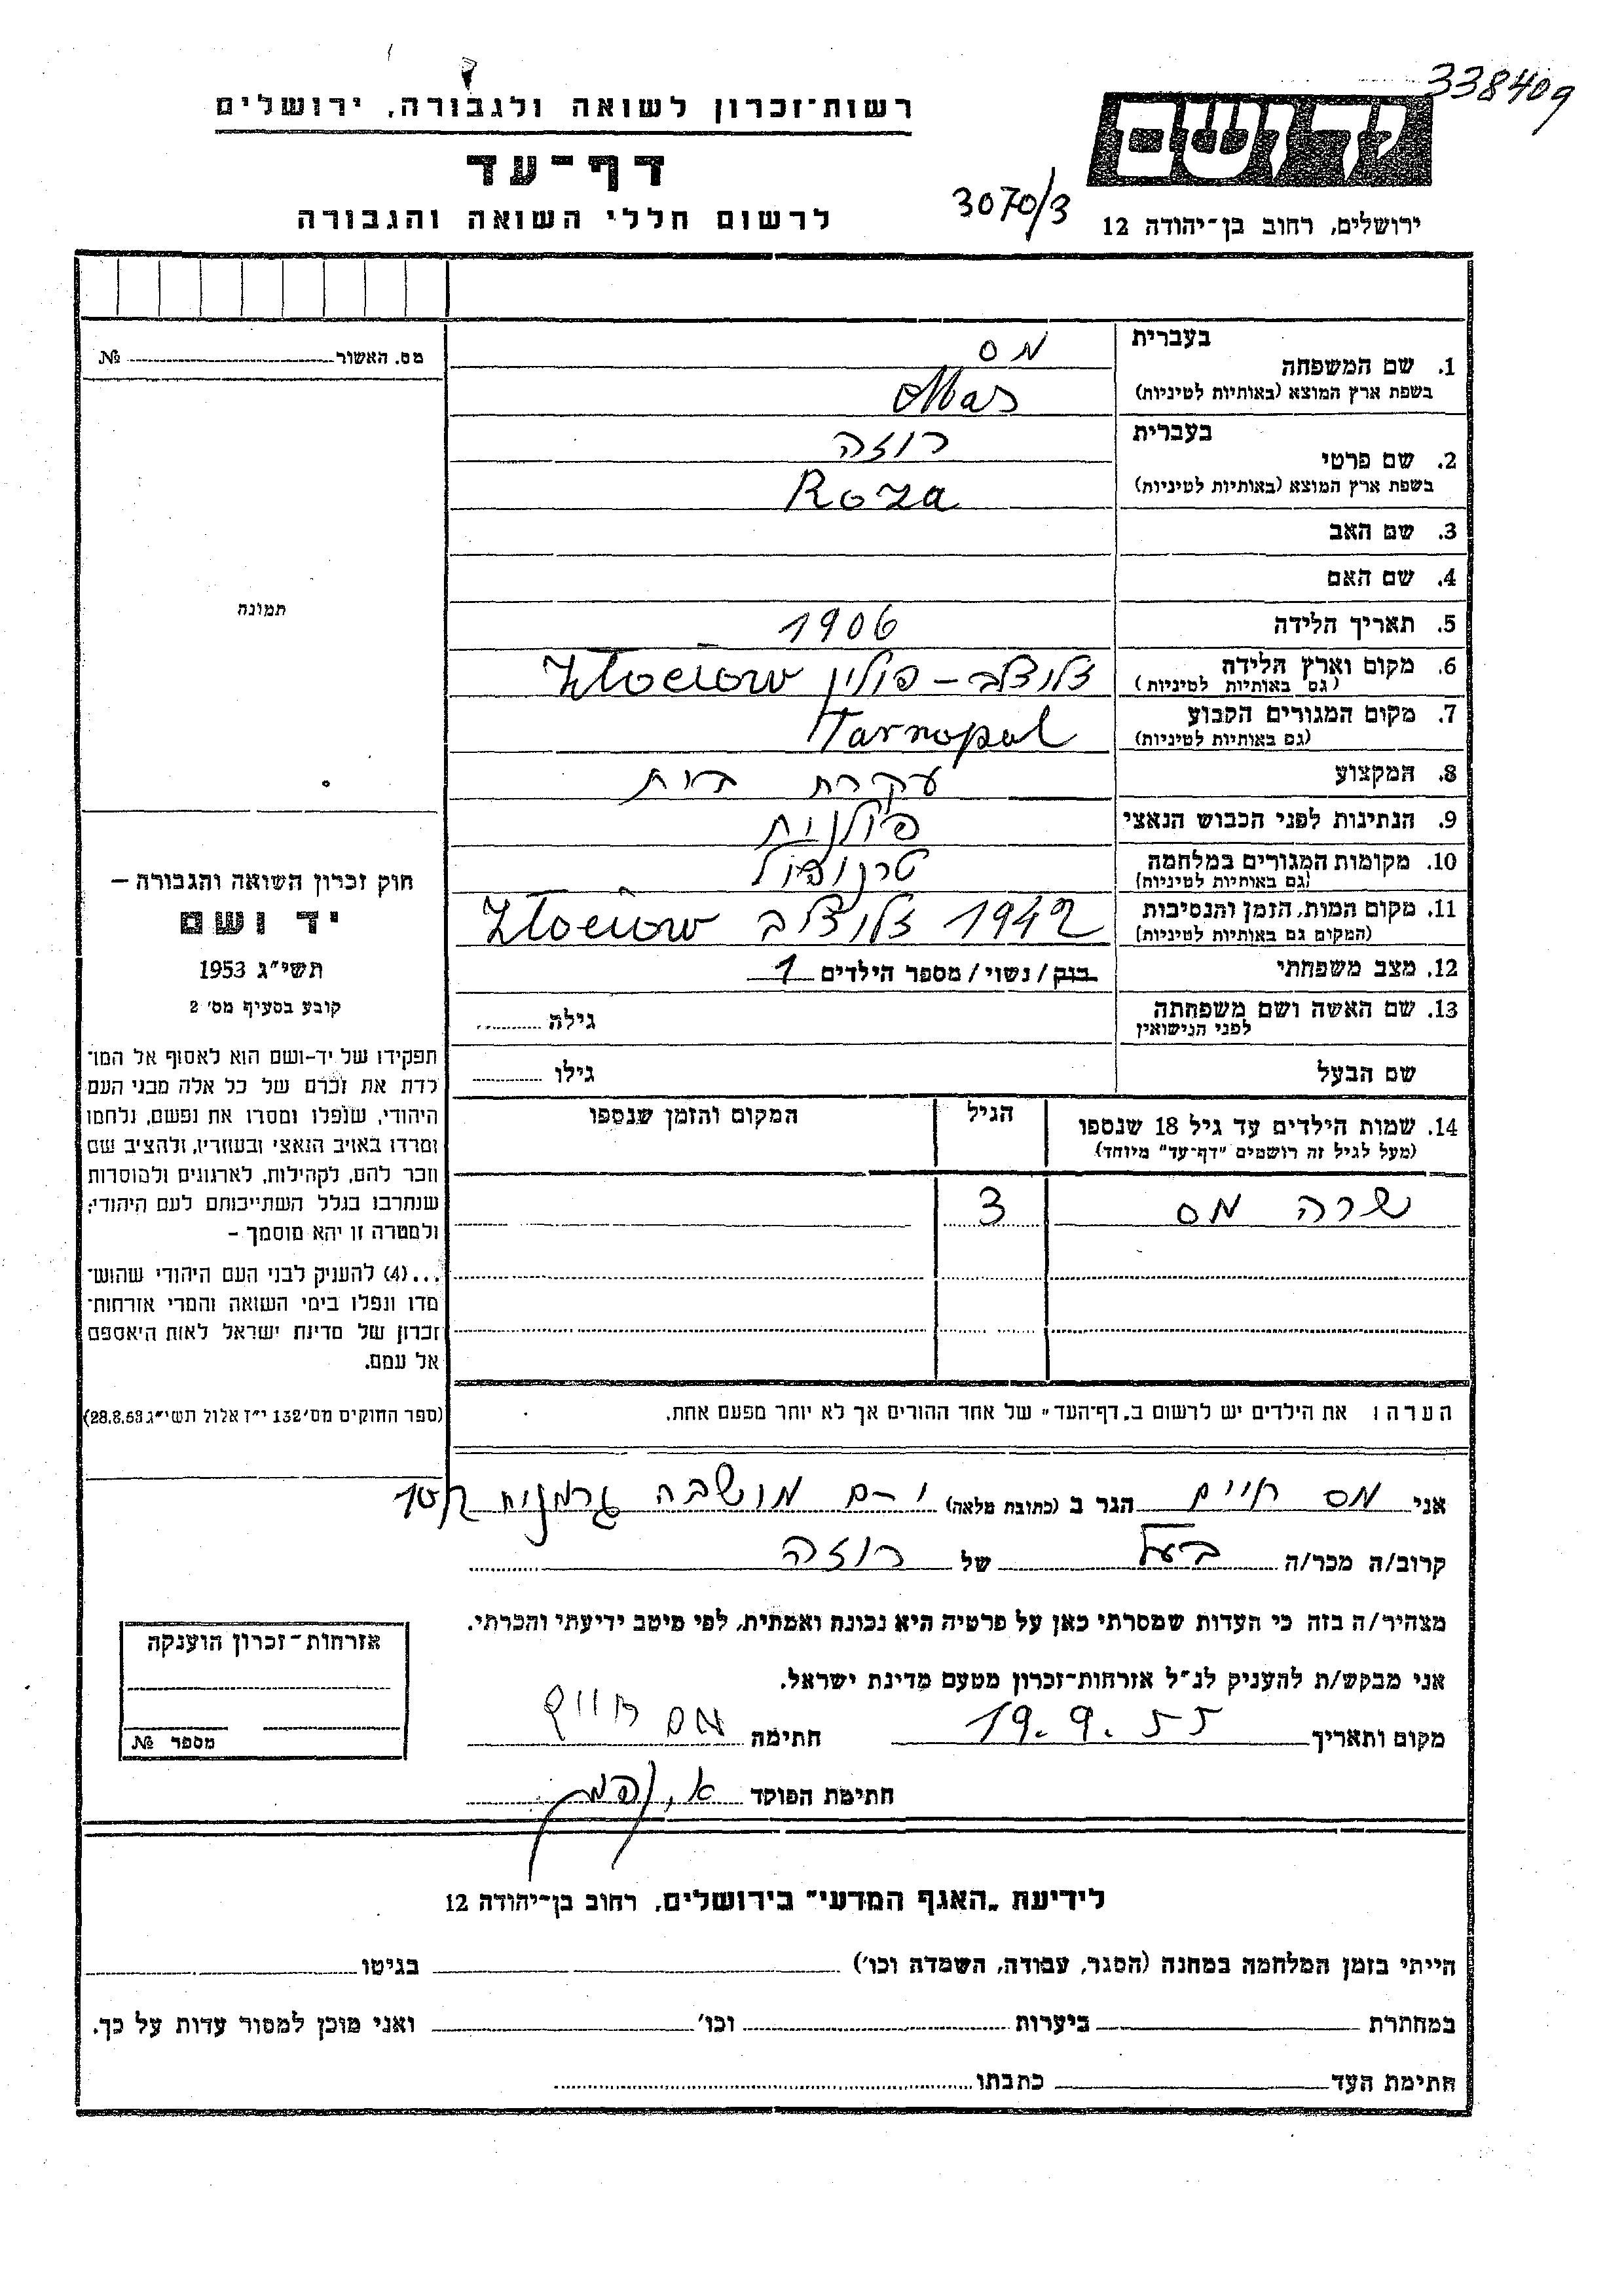 338409
רשות־זכרון לשואה ולגבורה, ירושלים
דף־עד
לרשום חללי השואה והגבורה
יד ושם
3070/3
ירושלים, רחוב בן־יהודה 12
מס. האשור № 
בעברית
1. שם המשפחה
בשפת ארץ המוצא (באותיות לטיניות)
מס
Mas
בעברית
2. שם פרטי
בשפת ארץ המוצא (באותיות לטיניות)
רוזה
Roza
3. שם האב
4. שם האם
5. תאריך הלידה 1906
6. מקום וארץ הלידה
(גם באותיות לטיניות)
זלוצ'ב – פולין Złoczow
7. מקום המגורים הקבוע
(גם באותיות לטיניות)
Tarnopol
8. המקצוע עקרת בית
9. הנתינות לפני הכבוש הנאצי פולנית
10. מקומות המגורים במלחמה
(גם באותיות לטיניות)
טרנופול
11. מקום המות, הזמן והנסיבות
(המקום גם באותיות לטיניות)
1942 זלוצ'ב Złoczow
12. מצב משפחתי רוק / נשוי / מספר הילדים 1
13. שם האשה ושם משפחתה
לפני הנישואין
גילה
שם הבעל גילו
14. שמות הילדים עד גיל 18 שנספו
(מעל לגיל זה רושמים "דף־עד" מיוחד)
הגיל
המקום והזמן שנספו
שרה מס 3
הערה: את הילדים יש לרשום ב"דף־העד" של אחד ההורים אך לא יותר מפעם אחת.
תמונה
חוק זכרון השואה והגבורה –
יד ושם
תשי"ג 1953
קובע בסעיף מס' 2
תפקידו של יד־ושם הוא לאסוף אל המו־
לדת את זכרם של כל אלה מבני העם
היהודי, שנפלו ומסרו את נפשם, נלחמו
ומרדו באויב הנאצי ובעוזריו, ולהציב שם
וזכר להם, לקהילות, לארגונים ולמוסדות
שנחרבו בגלל השתייכותם לעם היהודי;
ולמטרה זו יהא מוסמך –
...(4) להעניק לבני העם היהודי שהוש־
מדו ונפלו בימי השואה והמרי אזרחות־
זכרון של מדינת ישראל לאות היאספם
אל עמם.
(ספר החוקים מס' 132 י"ז אלול תשי"ג 28.8.53)
אני מס חיים הגר ב (כתובת מלאה) י–ם מושבה גרמנית
קרוב/ה מכר/ה בעל של רוזה
מצהיר/ה בזה כי העדות שמסרתי כאן על פרטיה היא נכונה ואמתית, לפי מיטב ידיעתי והכרתי.
אני מבקש/ת להעניק לנ"ל אזרחות־זכרון מטעם מדינת ישראל.
מקום ותאריך 19.9.55 חתימה מס חיים
חתימת הפוקד
אזרחות־זכרון הוענקה
מספר №
לידיעת "האגף המדעי" בירושלים, רחוב בן־יהודה 12
הייתי בזמן המלחמה במחנה (הסגר, עבודה, השמדה וכו') בגיטו
במחתרת ביערות וכו' ואני מוכן למסור עדות על כך.
חתימת העד כתבתו